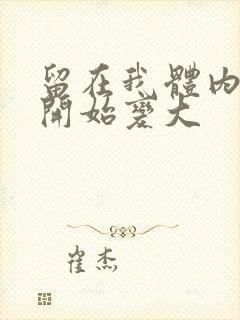 留在我體內
開始變大
崔杰